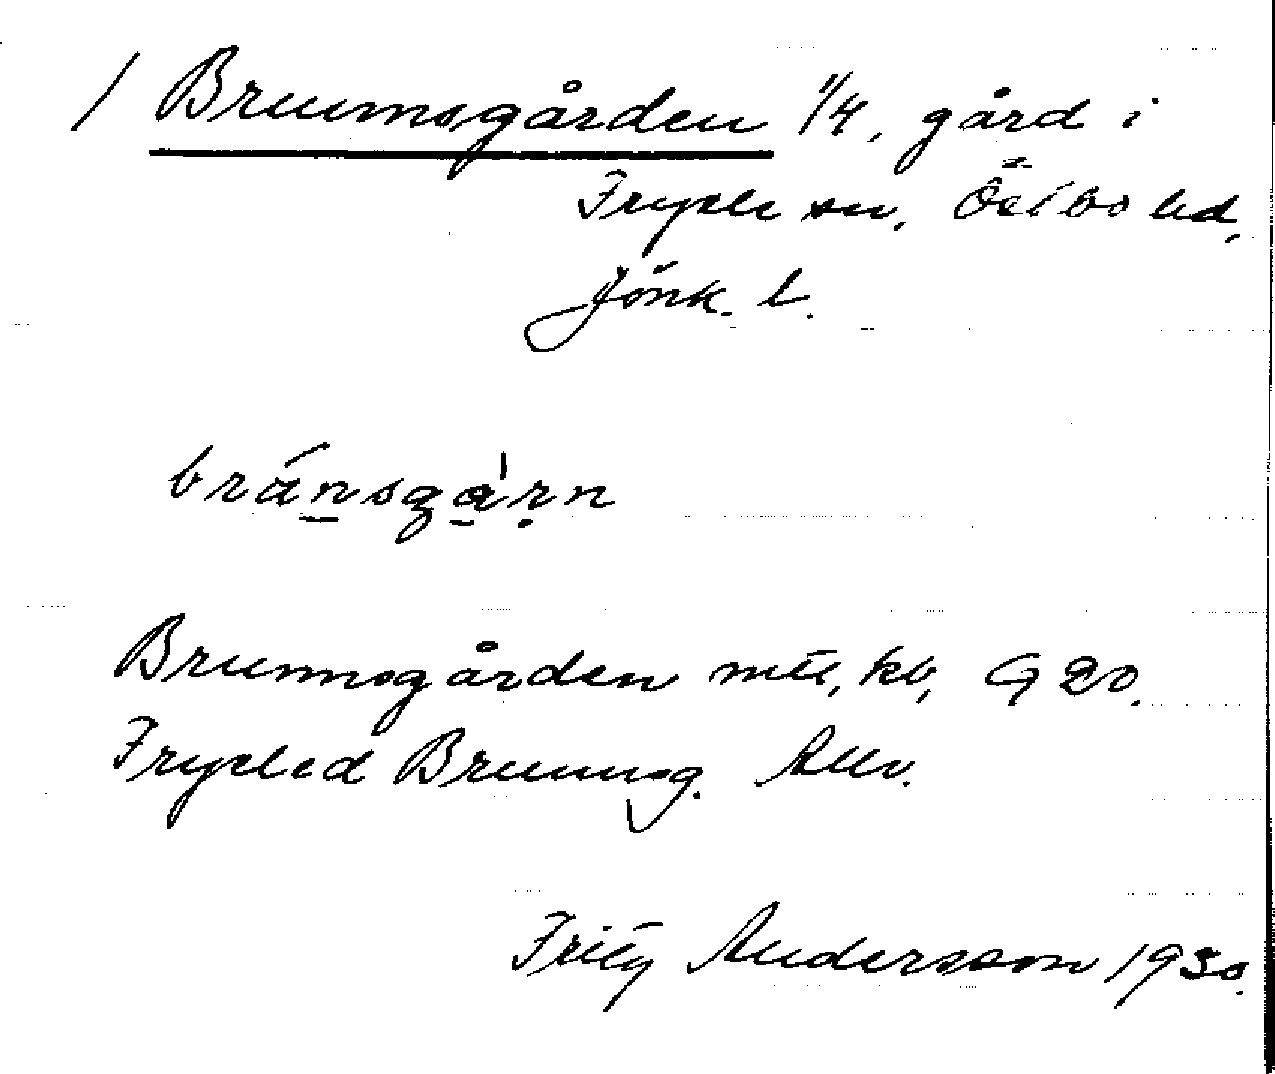 / Brunnsgården 1/4, gård i
Fryele sn, Östbo hd,
Jönk. l.
bránsgà'rn
Brunnsgården mtl, kb, G 20.
Fryeled Brunnsg. Allv.
Fritz Andersson 1930.